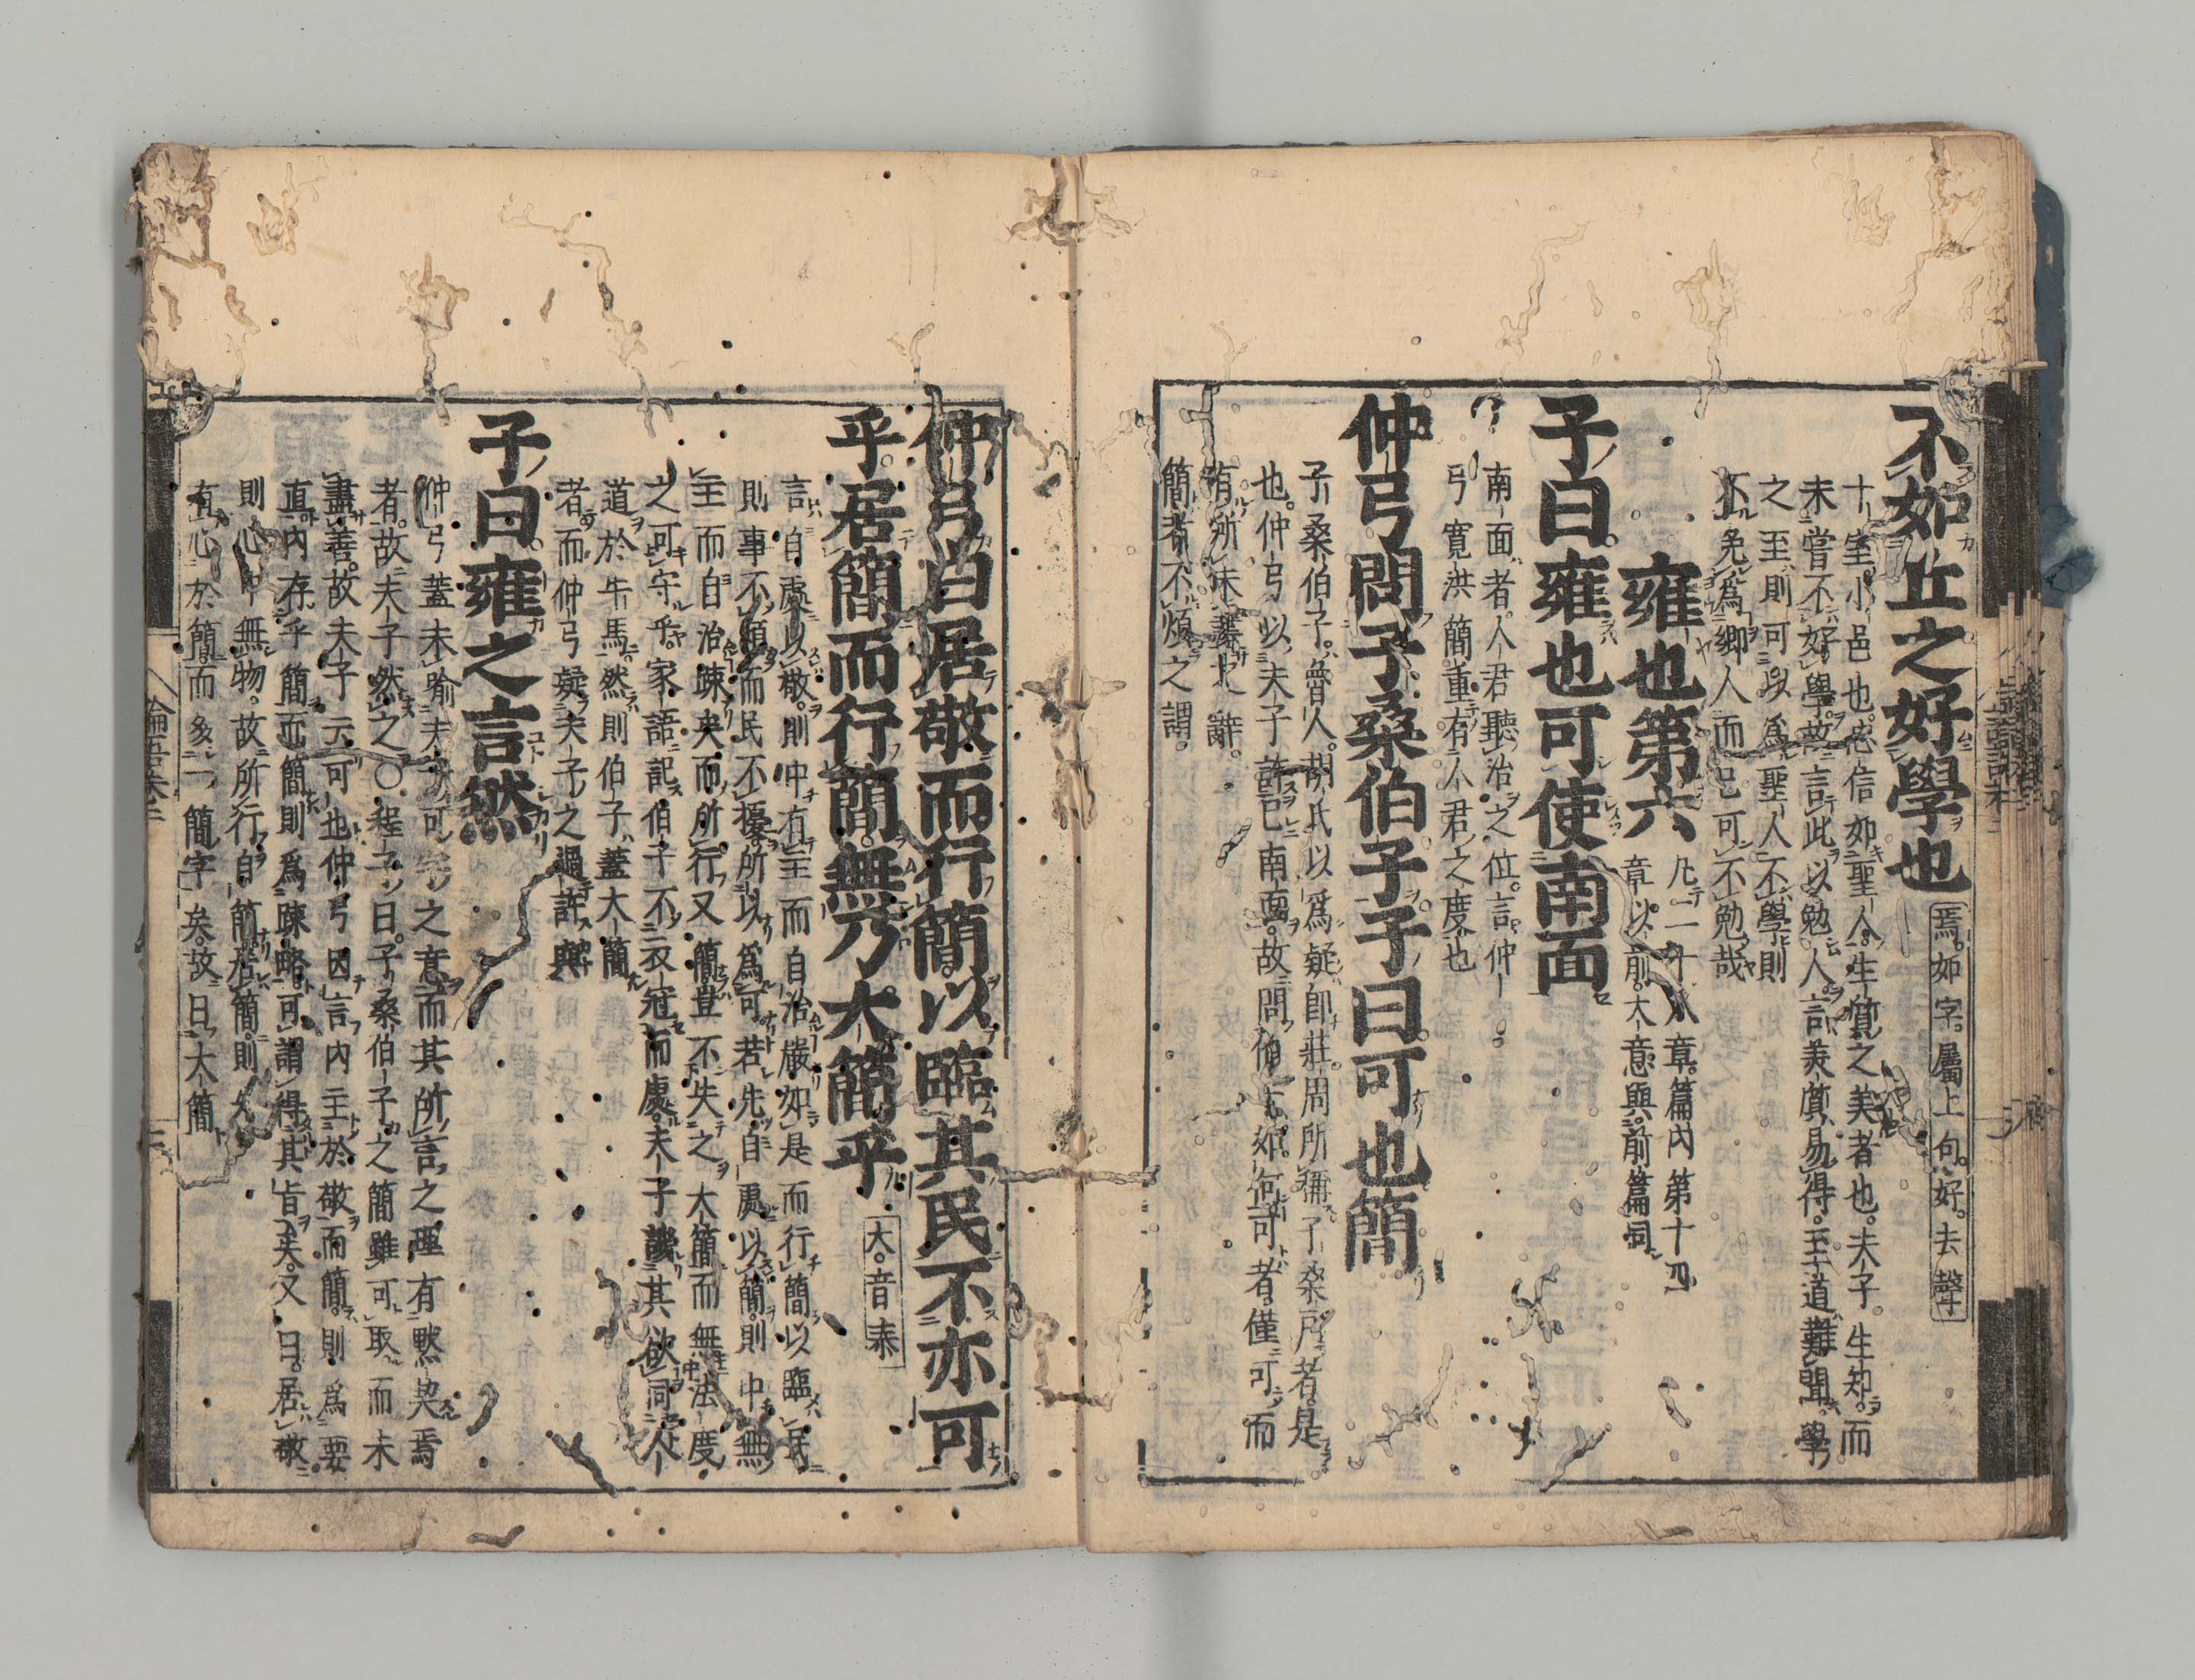 不如丘之好學也 焉如字屬上句好去聲
十室小邑也忠信如聖人生質之美者也夫子生知而
未嘗不好學故言此以勉人言美質易得至道難聞學
之至則可以爲聖人不學則
不免爲鄉人而已可不勉哉
雍也第六 凡二十八章篇內第十四
章以前大意與前篇同
子曰雍也可使南面
南面者人君聽治之位言仲
弓寬洪簡重有人君之度也
仲弓問子桑伯子子曰可也簡
子桑伯子魯人胡氏以爲疑卽莊周所稱子桑戶者是
也仲弓以夫子許己南面故問伯子如何可者僅可而
有所未盡之辭
簡者不煩之謂
仲弓曰居敬而行簡以臨其民不亦可
乎居簡而行簡無乃大簡乎 大音泰
言自處以敬則中有主而自治嚴如是而行簡以臨民
則事不煩而民不擾所以爲可若先自處以簡則中無
主而自治疎矣而所行又簡豈不失之大簡而無法度
之可守乎家語記伯子不衣冠而處夫子譏其欲同人
道於牛馬然則伯子蓋大簡
者而仲弓疑夫子之過許與
子曰雍之言然
仲弓蓋未喻夫子可字之意而其所言之理有默契焉
者故夫子然之○程子曰子桑伯子之簡雖可取而未
盡善故夫子云可也仲弓因言內主於敬而簡則爲要
直內存乎簡而簡則爲疎略可謂得其旨矣又曰居敬
則心中無物故所行自簡居簡則先
有心於簡而多一簡字矣故曰大簡